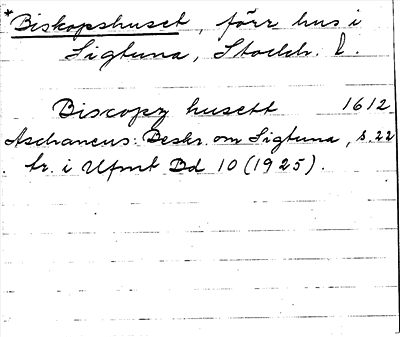 *Biskopshuset, förr hus i
Sigtuna, Stockh. l.
Biscopz husett 1612
Aschaneus: Beskr. om Sigtuna, s. 22
tr. i Ufmt Bd 10 (1925).